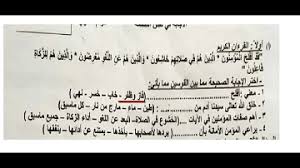 أولاً: القرءان الكريم
قَدْ أَفْلَحَ الْمُؤْمِنُونَ * الَّذِينَ هُمْ فِي صَلَاتِهِمْ خَاشِعُونَ * وَالَّذِينَ هُمْ عَنِ اللَّغْوِ مُعْرِضُونَ * وَالَّذِينَ هُمْ لِلزَّكَاةِ
فَاعِلُونَ "
- اختر الإجابة الصحيحة مما بين القوسين مما يأتي:
- معنى (أفلح)............(فاز وظفر - خاب - خسر - نهى )
- خلق الله تعالى سيدنا آدم من ........(طين – ماء – مارج من نار – كل ماسبق)
- أهم صفات المؤمنين في الآيات....(الخشوع في الصلاة - البعد عن اللغو - أداء الزكاة – جميع ماسبق)
- يراعي المؤمن الأمانة بأن.....(يردها لأصحابها - يأخذها – يمتنع عن أدائها – ينقصها)